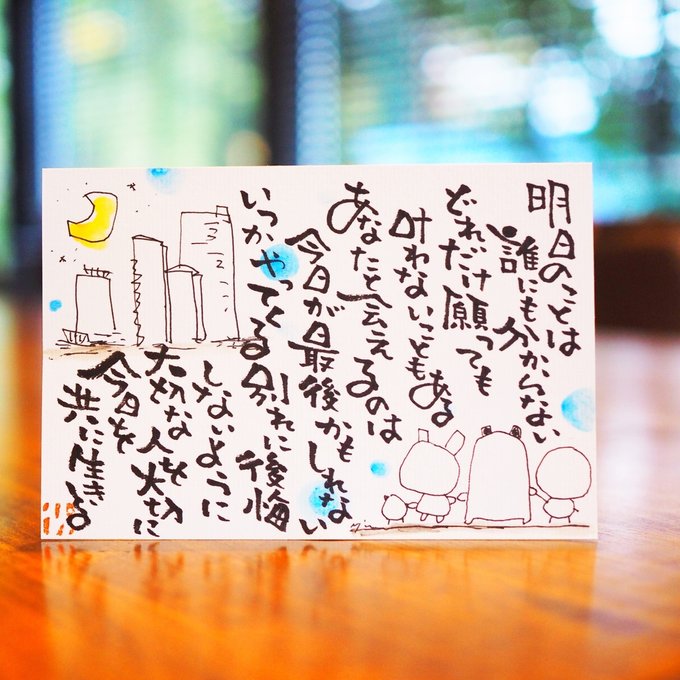 明日のことは
誰にも分からない
どれだけ願っても
叶わないこともある
あなたと会えるのは
今日が最後かもしれない
いつかやってくる別れに後悔
しないように
大切な人を大切に
今日を
共に生きる